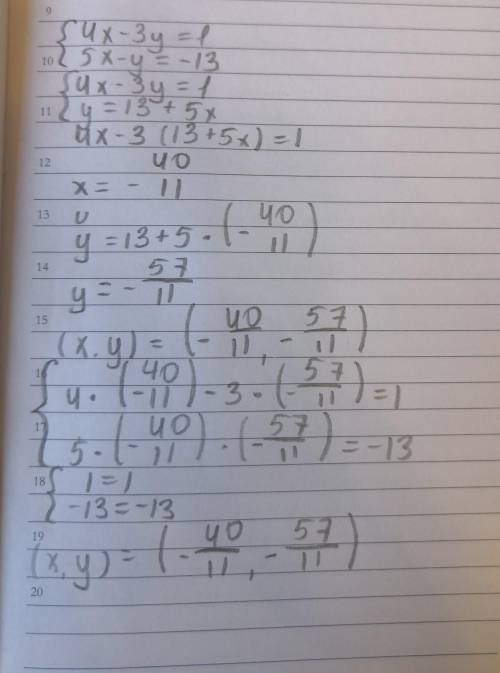 9
{4x-3y=1
10 {5x-y=-13
{4x-3y=1
11 {y=13+5x
4x-3(13+5x)=1
12
x=-40/11
13 и
y=13+5·(-40/11)
14
y=-57/11
15
(x,y)=(-40/11,-57/11)
1 {4·(40/-11)-3·(-57/11)=1
17 {5·(-40/11)·(-57/11)=-13
18 {1=1
{-13=-13
19
(x,y)=(-40/11,-57/11)
20